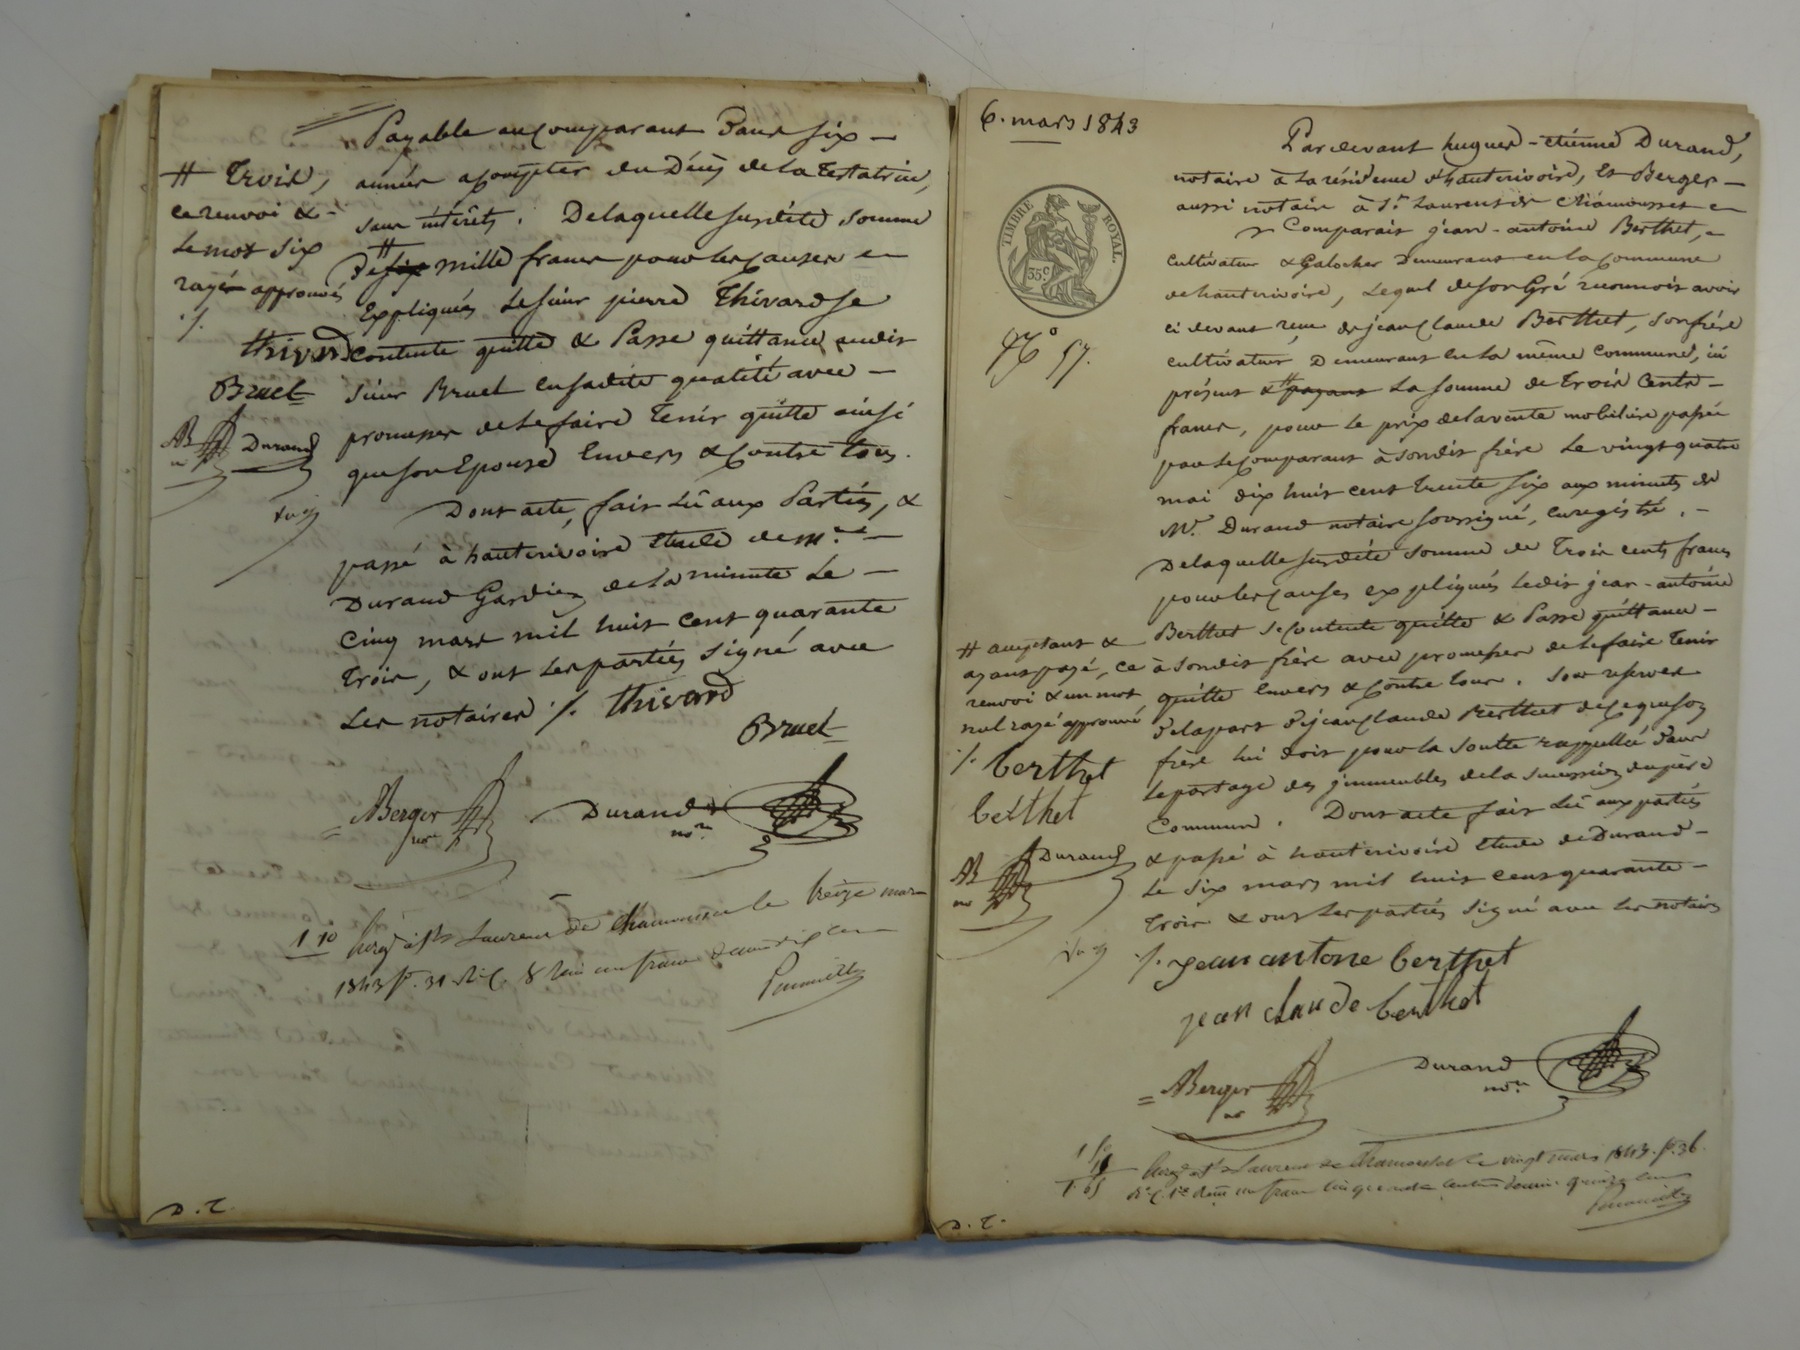 Payable au comparant dans six
années a compter du Décès de la Testatrice,
sans intérêts. De laquelle susdite somme
de six mille francs pour les causes en
Expliquées le sieur pierre Thivard se
contente quitte & Passe quittance audit
sieur Bruel en sadite qualité avec
promesse de le faire Tenir quitte ainsi
que son Epouse Envers & Contre tous.
Dont acte, fait Lû aux Parties, &
passé à hauterivoire Etude de Me
Durand Gardien de la minute Le
Cinq mars mil huit cent quarante
Trois, & ont les parties signé avec
Les notaires ./. thivard
Bruel
ABerger nore Durand nore
# Trois,
ce renvoi &
Le mot six
rayé approuvés
./.
thivard
Bruel
AB Durand
1 10 Enrgé à St Laurent de Chamousset le treize mars
1843 fo. 31 Ro C. 8 Reçu un franc decime dix cen
D. T.
6. mars 1843
TIMBRE ROYAL.
35 c
No 57.
Pardevant hugues-etienne Durand,
notaire à la résidence d'hauterivoire, Et Berger
aussi notaire à St. Laurent de Chamousset
Comparait jean-antoine Berthet,
cultivateur & Galocher Demeurant en la commune
de hauterivoire, Lequel de son Gré reconnoit avoir
ci devant reçu de jean Claude Berthet, son frère
cultivateur Demeurant en la même commune, ici
présent & # payant La somme de Trois Cents
francs, pour le prix de la vente mobilière passée
par le Comparant à son dit frère Le vingt quatre
mai dix huit cent trente six aux minutes de
Me. Durand notaire soussigné, Enregistré.
De laquelle susdite somme de Trois cents francs
pour les causes expliquées ledit jean-antoine
Berthet se Contente quitte & Passe quittance
à son dit frère avec promesse de le faire Tenir
quitte Envers & Contre tous. Sous reserves
de la part de jean Claude Berthet de ce que son
frère lui doit pour la soulte rappellée dans
le partage des immeubles de la succession du père
Commun. Dont acte fait Lû aux parties
& passé à hauterivoire Etude de Durand
Le six mars mil huit cent quarante
trois & ont les parties signé avec les notaires
./. jean antone berthet
jean claude berthet
ABerger no Durand nore
# acceptant &
ayant payé, ce
renvoi & un mot
nul rayé approuvé
./. berthet
berthet
AB no Durand
Enrgé à St Laurent de Chamousset le vingt mars 1843. fo. 36
Ro C. 1re Reçu un franc cinquante centimes decime quinze cen
1. 65
D. T.